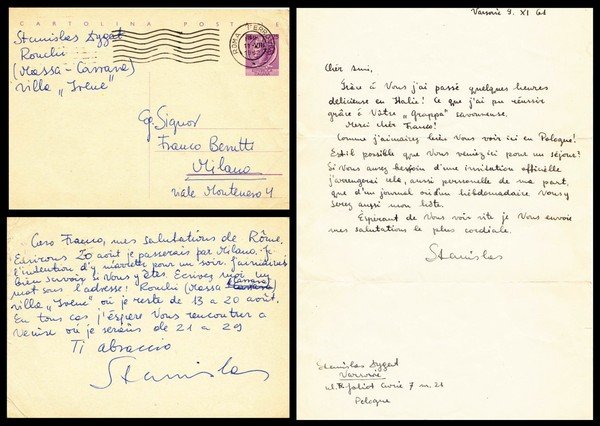 CARTOLINA POSTALE
Stanislas Dygat
Ronchi
(Massa-Carrara)
villa „Irene"
ROMA FERROVIA
Eg. Signor
Franco Berutti
Milano
viale Montenero 4
Caro Franco, mes salutations de Rôme.
Environs 20 août je passerais par Milano. Je
l'indention d'y m'arreter pour un soir. J'aimerais
bien savoir si vous y êtes. Ecrivez moi un
mot sous l'addresse: Ronchi (Massa Carrara)
villa „Irene" où je reste de 13 a 20 août.
En tous cas j'éspère Vous rencontrer a
Venise où je serais de 21 a 29
Ti abraccio
Stanislas
Varsovie 9. XI 61
Cher ami,
Grâce à Vous j'ai passé quelques heures
délicieuse en Italie! Ce que j'ai pu réussir
grâce à Vôtre „grappa" savoureuse.
Merci cher Franco!
Comme j'aimerais bien Vous voir ici en Pologne!
Estil possible que Vous veniez ici pour un séjour?
Si Vous aurez besoin d'une invitation officielle
j'arrengerai cela, aussi personelle de ma part,
que d'un journal ou d'un hebdomadaire. Vous y
serez aussi mon hôte.
Espérant de Vous voir vite je Vous envoie
mes salutations le plus cordiale.
Stanislas
Stanislas Dygat
Varsovie
ul. Joliot Curie 7 m. 21
Pologne